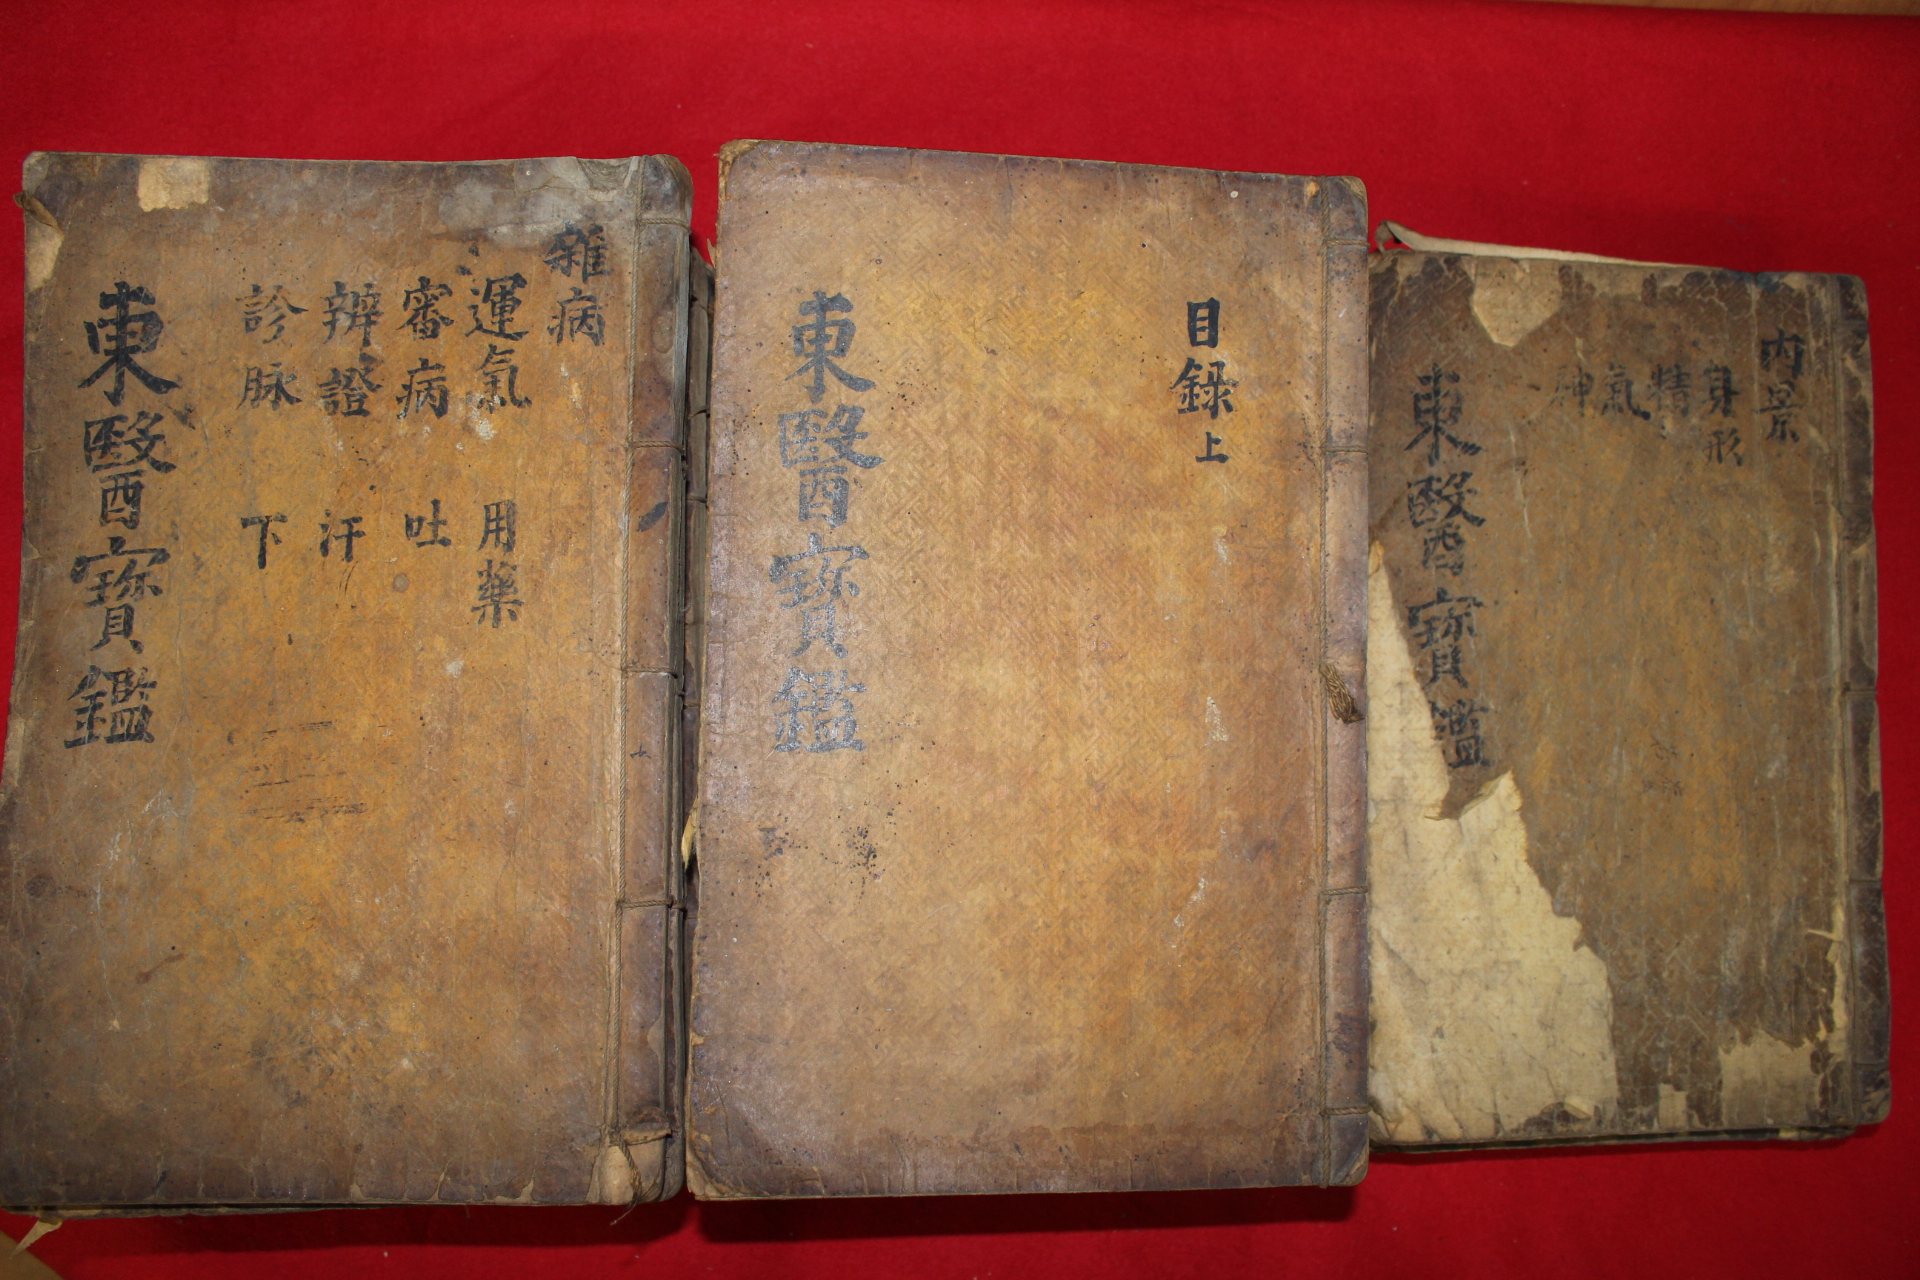 雜病
運氣 用藥
審病 吐
辨證 汗
診脉 下
東醫寶鑑
目録上
東醫寶鑑
內景
身形
精
氣
神
東醫寶鑑